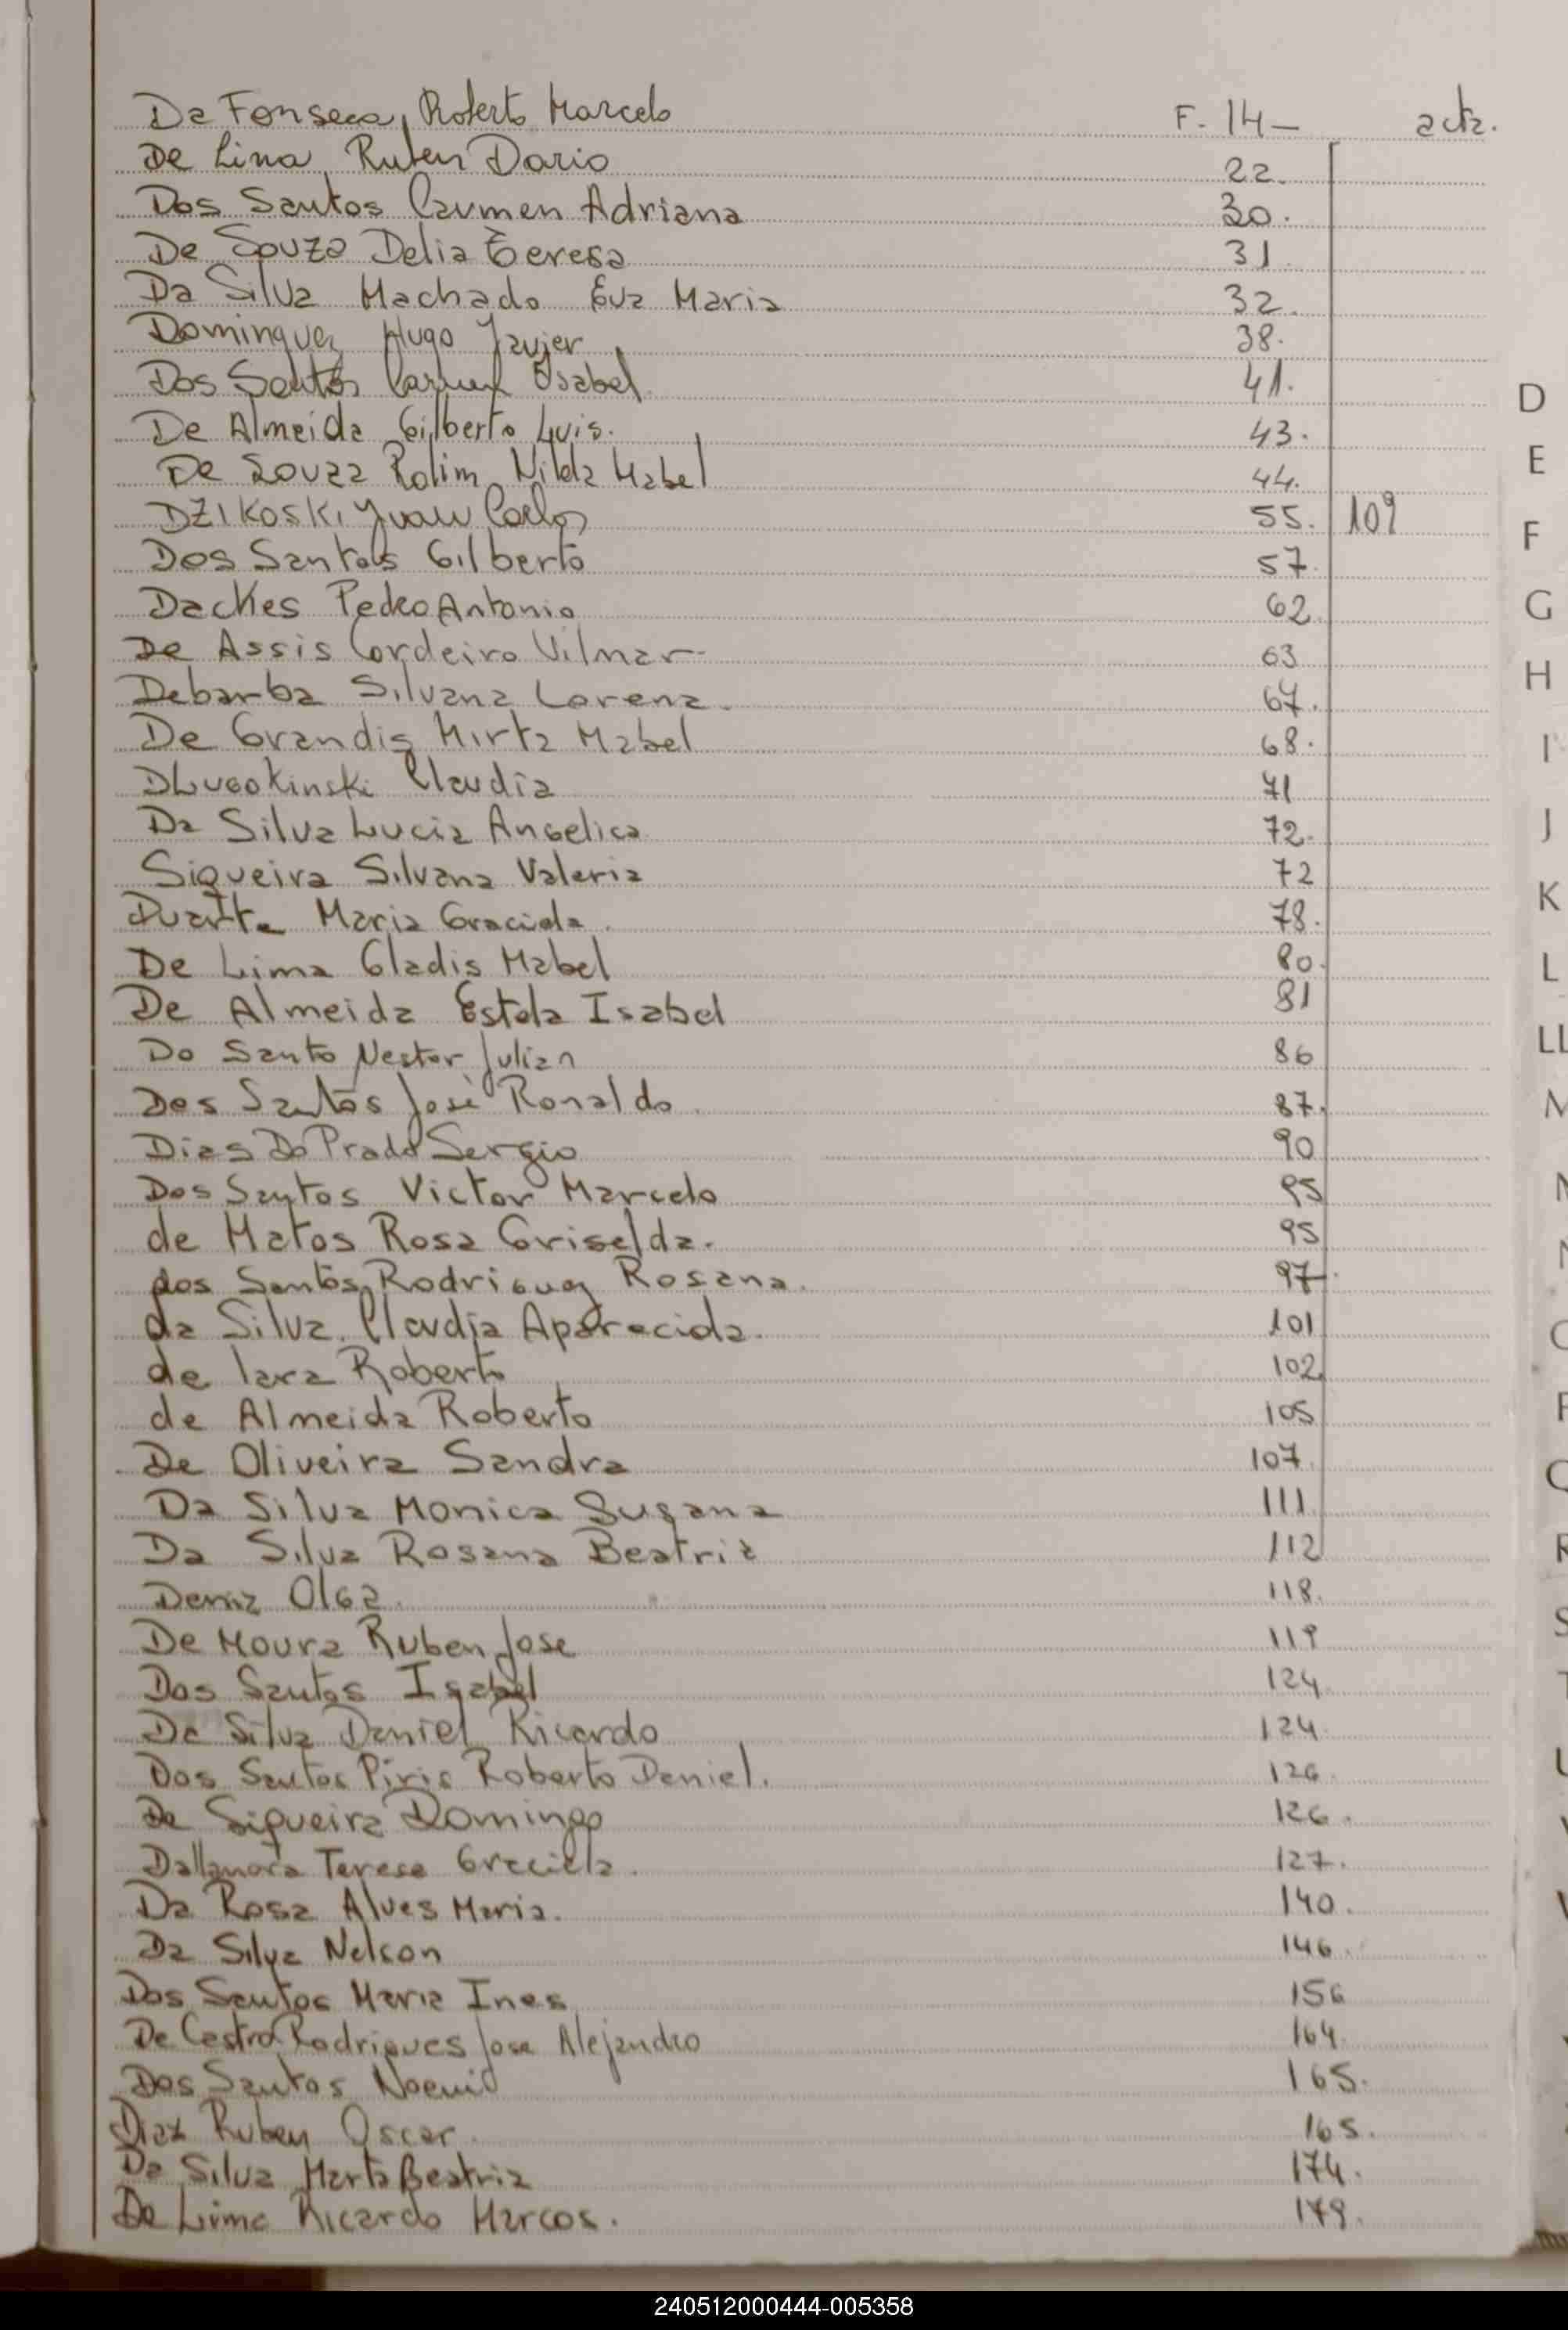 Da Fonseca, Roberto Marcelo F. 14 — acta.
De Lima Ruben Dario 22.
Dos Santos Carmen Adriana 30.
De Souza Delia Teresa 31
Da Silva Machado Eva Maria 32.
Dominguez Hugo Javier 38.
Dos Santos Carmen Isabel 41.
De Almeida Gilberto Luis. 43.
De Souza Rolim Nilda Mabel 44.
DZIKOSKI Juan Carlos 55. 109
Dos Santos Gilberto 57
Dackes Pedro Antonio 62.
De Assis Cordeiro Vilmar- 63
Debarba Silvana Lorena. 67.
De Grandis Mirta Mabel 68.
DLugokinski Claudia 71
Da Silva Lucia Angelica 72.
Siqueira Silvana Valeria 72
Duarte Maria Graciela. 78.
De Lima Gladis Mabel 80.
De Almeida Estela Isabel 81
Do Santo Nestor Julian 86
Dos Santos José Ronaldo. 87.
Dias Do Prado Sergio 90
Dos Santos Victor Marcelo 95
de Matos Rosa Griselda. 95
dos Santos Rodriguez Rosana. 97.
da Silva, Claudia Aparecida. 101
de lara Roberto 102
de Almeida Roberto 105
De Oliveira Sandra 107
Da Silva Monica Susana 111
Da Silva Rosana Beatriz 112
Deniz Olga. 118.
De Moura Ruben Jose 119
Dos Santos Isabel 124
Da Silva Daniel Ricardo 124.
Dos Santos Piris Roberto Daniel. 126.
De Siqueira Domingo 126.
Dallanora Teresa Graciela. 127.
Da Rosa Alves Maria. 140.
Da Silva Nelson 146.
Dos Santos Maria Ines 156
De Castro Rodrigues Jose Alejandro 164.
Dos Santos 165.
Diaz Ruben Oscar. 165.
Da Silva Marta Beatriz 174.
De Lima Ricardo Marcos. 179.
D
E
F
G
H
I
J
K
L
LL
M
240512000444-005358